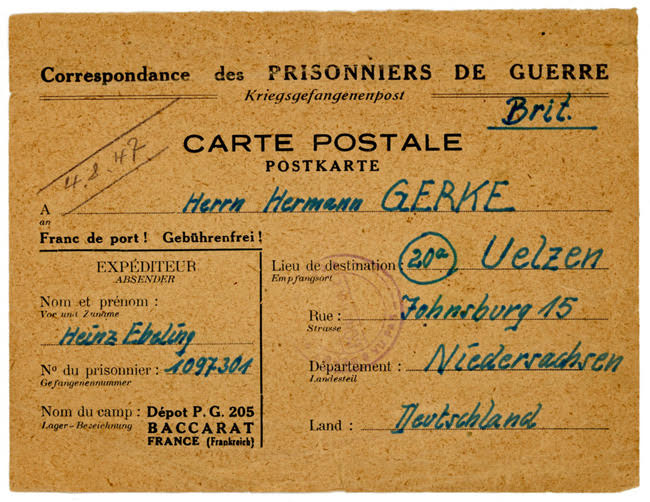 Correspondance des PRISONNIERS DE GUERRE
Kriegsgefangenenpost
Brit.
CARTE POSTALE
POSTKARTE
4.8.47
A Herrn Hermann GERKE
an
Franc de port ! Gebührenfrei !
EXPÉDITEUR
ABSENDER
Nom et prénom :
Vor und Zuname
Heinz Ebeling
No du prisonnier : 1097301
Gefangenennummer
Nom du camp : Dépot P. G. 205
Lager - Bezeichnung BACCARAT
FRANCE (Frankreich)
Lieu de destination : 20a Uelzen
Empfangsort
Rue : Johnsburg 15
Strasse
Département : Niedersachsen
Landesteil
Land : Deutschland